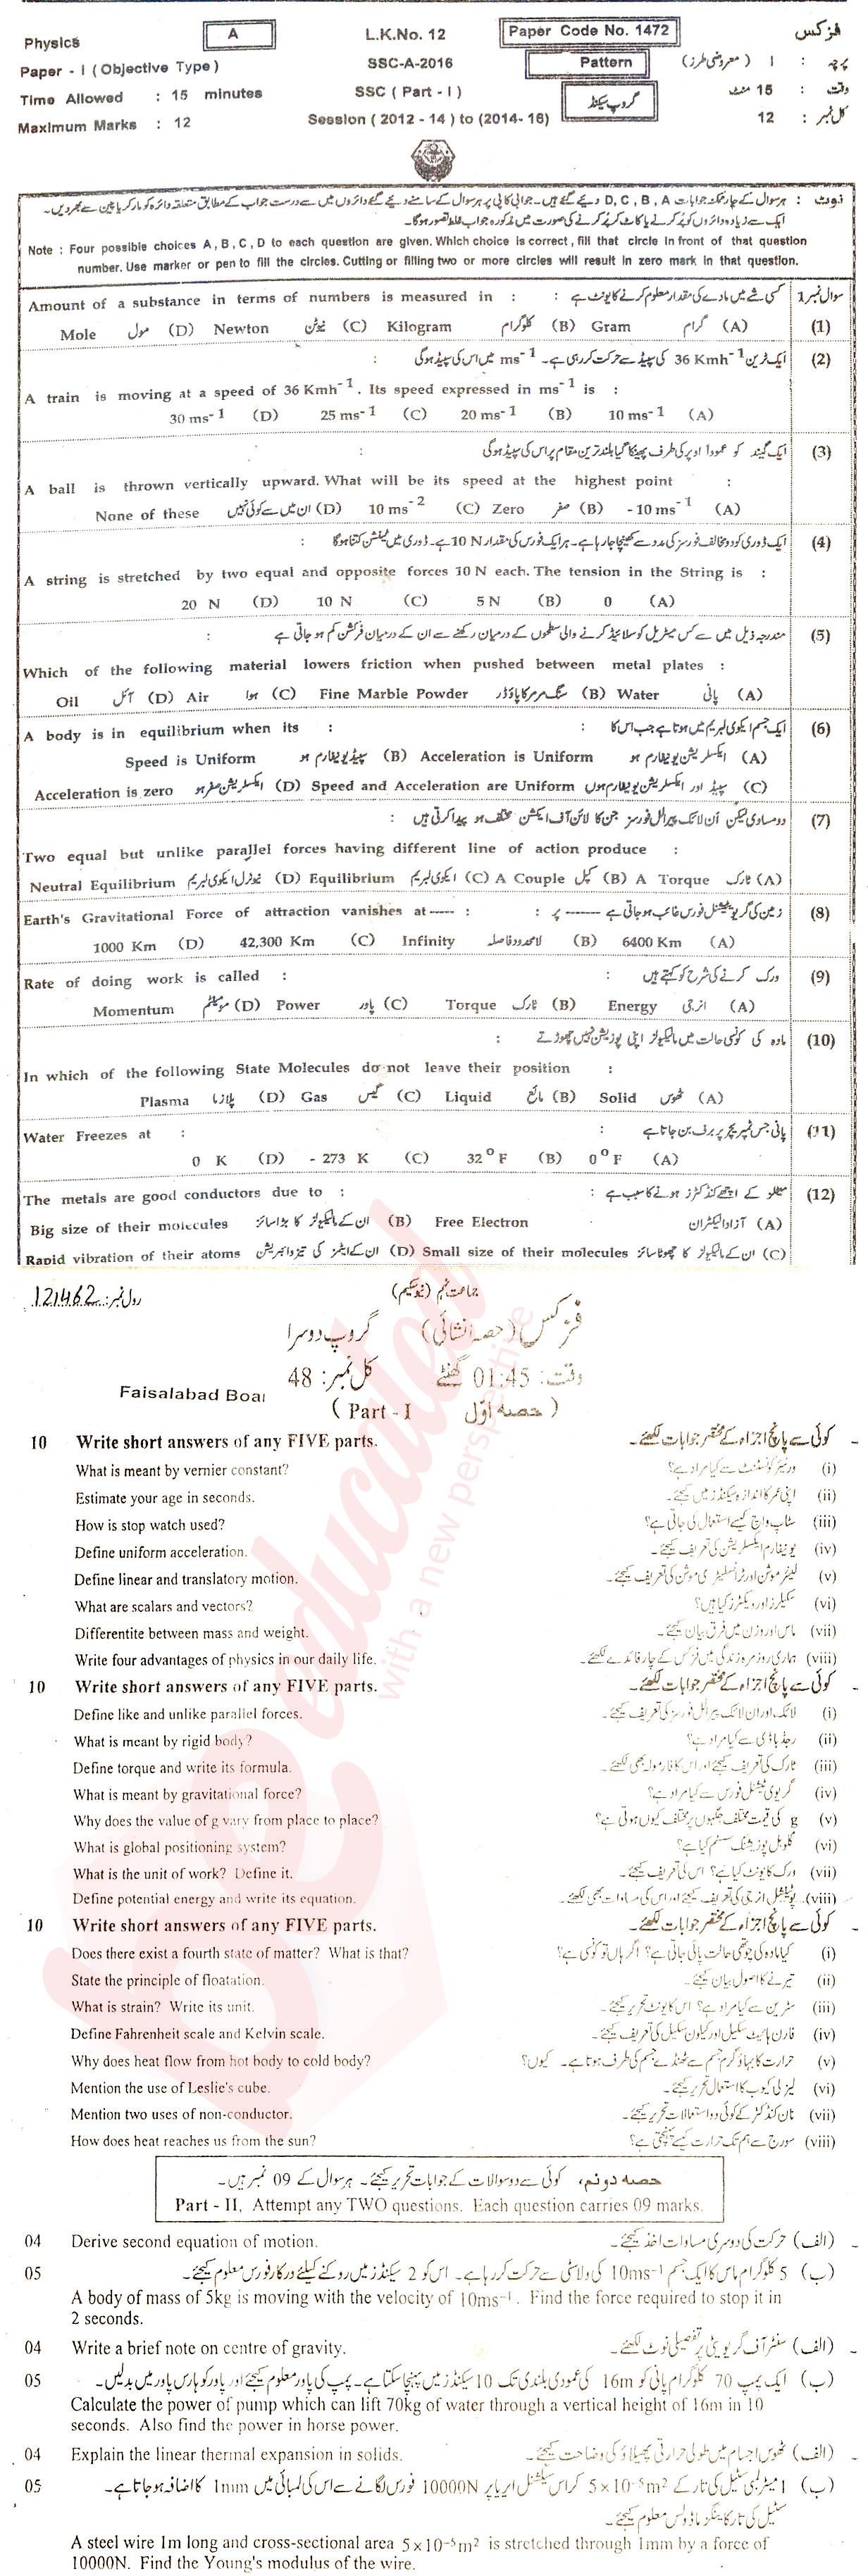 Physics A L.K.No. 12 Paper Code No. 1472 فزکس
Paper - I ( Objective Type ) SSC-A-2016 Pattern پرچہ : I ( معروضی طرز )
Time Allowed : 15 minutes SSC ( Part - I ) گروپ سیکنڈ وقت : 15 منٹ
Maximum Marks : 12 Session ( 2012 - 14 ) to (2014- 16) کل نمبر : 12
نوٹ : ہر سوال کے چار ممکنہ جوابات D, C, B, A دیئے گئے ہیں۔ جوابی کاپی پر ہر سوال کے سامنے دیئے گئے دائروں میں سے درست جواب کے مطابق متعلقہ دائرہ کو مارکر یا پین سے بھر دیں۔
ایک سے زیادہ دائروں کو پُر کرنے یا کاٹ کر پُر کرنے کی صورت میں مذکورہ جواب غلط تصور ہوگا۔
Note : Four possible choices A , B , C , D to each question are given. Which choice is correct , fill that circle in front of that question
number. Use marker or pen to fill the circles. Cutting or filling two or more circles will result in zero mark in that question.
Amount of a substance in terms of numbers is measured in : : کسی شے میں مادے کی مقدار معلوم کرنے کا یونٹ ہے سوال نمبر 1
Mole مول (D) Newton نیوٹن (C) Kilogram کلوگرام (B) Gram گرام (A) (1)
ایک ٹرین 36 Kmh-1 کی سپیڈ سے حرکت کر رہی ہے۔ ms-1 میں اس کی سپیڈ ہوگی : (2)
A train is moving at a speed of 36 Kmh-1 . Its speed expressed in ms-1 is :
30 ms-1 (D) 25 ms-1 (C) 20 ms-1 (B) 10 ms-1 (A)
ایک گیند کو عموداً اوپر کی طرف پھینکا گیا بلند ترین مقام پر اس کی سپیڈ ہوگی : (3)
A ball is thrown vertically upward. What will be its speed at the highest point :
None of these ان میں سے کوئی نہیں (D) 10 ms-2 (C) Zero صفر (B) - 10 ms-1 (A)
ایک ڈوری کو دو مخالف فورسز کی مدد سے کھینچا جا رہا ہے۔ ہر ایک فورس کی مقدار 10 N ہے۔ ڈوری میں ٹینشن کتنا ہوگا : (4)
A string is stretched by two equal and opposite forces 10 N each. The tension in the String is :
20 N (D) 10 N (C) 5 N (B) 0 (A)
مندرجہ ذیل میں سے کس میٹریل کو سلائیڈ کرنے والی سطحوں کے درمیان رکھنے سے ان کے درمیان فرکشن کم ہو جاتی ہے : (5)
Which of the following material lowers friction when pushed between metal plates :
Oil آئل (D) Air ہوا (C) Fine Marble Powder سنگ مرمر کا پاؤڈر (B) Water پانی (A)
A body is in equilibrium when its : : ایک جسم ایکوی لبریم میں ہوتا ہے جب اس کا (6)
Speed is Uniform سپیڈ یونیفارم ہو (B) Acceleration is Uniform ایکسلریشن یونیفارم ہو (A)
Acceleration is zero ایکسلریشن صفر ہو (D) Speed and Acceleration are Uniform سپیڈ اور ایکسلریشن یونیفارم ہوں (C)
دو مساوی لیکن اَن لائک پیرالل فورسز جن کا لائن آف ایکشن مختلف ہو پیدا کرتی ہیں : (7)
Two equal but unlike parallel forces having different line of action produce :
Neutral Equilibrium نیوٹرل ایکوی لبریم (D) Equilibrium ایکوی لبریم (C) A Couple کپل (B) A Torque ٹارک (A)
Earth's Gravitational Force of attraction vanishes at ----- : : زمین کی گریویٹیشنل فورس غائب ہو جاتی ہے ------- پر (8)
1000 Km (D) 42,300 Km (C) Infinity لامحدود فاصلہ (B) 6400 Km (A)
Rate of doing work is called : : ورک کرنے کی شرح کو کہتے ہیں (9)
Momentum مومینٹم (D) Power پاور (C) Torque ٹارک (B) Energy انرجی (A)
مادہ کی کونسی حالت میں مالیکیولز اپنی پوزیشن نہیں چھوڑتے : (10)
In which of the following State Molecules do not leave their position :
Plasma پلازما (D) Gas گیس (C) Liquid مائع (B) Solid ٹھوس (A)
Water Freezes at : : پانی جس ٹمپریچر پر برف بن جاتا ہے (11)
0 K (D) - 273 K (C) 32°F (B) 0°F (A)
The metals are good conductors due to : : میٹلز کے اچھے کنڈکٹرز ہونے کا سبب ہے (12)
Big size of their molecules ان کے مالیکیولز کا بڑا سائز (B) Free Electron آزاد الیکٹران (A)
Rapid vibration of their atoms ان کے ایٹمز کی تیز وائبریشن (D) Small size of their molecules ان کے مالیکیولز کا چھوٹا سائز (C)
رول نمبر: 121462 جماعت نہم (نیو سکیم)
فزکس (حصہ انشائی) گروپ دوسرا
وقت: 01:45 گھنٹے کل نمبر: 48
Faisalabad Boar
( Part - I حصہ اوّل )
10 Write short answers of any FIVE parts. کوئی سے پانچ اجزاء کے مختصر جوابات لکھئے۔
What is meant by vernier constant? ورنیئر کونسٹنٹ سے کیا مراد ہے؟ (i)
Estimate your age in seconds. اپنی عمر کا اندازہ سیکنڈز میں کیجئے۔ (ii)
How is stop watch used? سٹاپ واچ کیسے استعمال کی جاتی ہے؟ (iii)
Define uniform acceleration. یونیفارم ایکسلریشن کی تعریف کیجئے۔ (iv)
Define linear and translatory motion. لینئر موشن اور ٹرانسلیٹری موشن کی تعریف کیجئے۔ (v)
What are scalars and vectors? سکیلرز اور ویکٹرز کیا ہیں؟ (vi)
Differentite between mass and weight. ماس اور وزن میں فرق بیان کیجئے۔ (vii)
Write four advantages of physics in our daily life. ہماری روزمرہ زندگی میں فزکس کے چار فائدے لکھئے۔ (viii)
10 Write short answers of any FIVE parts. کوئی سے پانچ اجزاء کے مختصر جوابات لکھئے۔
Define like and unlike parallel forces. لائک اور ان لائک پیرالل فورسز کی تعریف کیجئے۔ (i)
What is meant by rigid body? رجڈ باڈی سے کیا مراد ہے؟ (ii)
Define torque and write its formula. ٹارک کی تعریف کیجئے اور اس کا فارمولہ بھی لکھئے۔ (iii)
What is meant by gravitational force? گریوی ٹیشنل فورس سے کیا مراد ہے؟ (iv)
Why does the value of g vary from place to place? g کی قیمت مختلف جگہوں پر مختلف کیوں ہوتی ہے؟ (v)
What is global positioning system? گلوبل پوزیشنگ سسٹم کیا ہے؟ (vi)
What is the unit of work? Define it. ورک کا یونٹ کیا ہے؟ اس کی تعریف کیجئے۔ (vii)
Define potential energy and write its equation. پوٹینشل انرجی کی تعریف کیجئے اور اس کی مساوات بھی لکھئے۔ (viii)
10 Write short answers of any FIVE parts. کوئی سے پانچ اجزاء کے مختصر جوابات لکھئے۔
Does there exist a fourth state of matter? What is that? کیا مادہ کی چوتھی حالت پائی جاتی ہے؟ اگر ہاں تو کونسی ہے؟ (i)
State the principle of floatation. تیرنے کا اصول بیان کیجئے۔ (ii)
What is strain? Write its unit. سٹرین سے کیا مراد ہے؟ اس کا یونٹ تحریر کیجئے۔ (iii)
Define Fahrenheit scale and Kelvin scale. فارن ہائیٹ سکیل اور کیلون سکیل کی تعریف کیجئے۔ (iv)
Why does heat flow from hot body to cold body? حرارت کا بہاؤ گرم جسم سے ٹھنڈے جسم کی طرف ہوتا ہے۔ کیوں؟ (v)
Mention the use of Leslie's cube. لیزلی کیوب کا استعمال تحریر کیجئے۔ (vi)
Mention two uses of non-conductor. نان کنڈکٹر کے کوئی دو استعمالات تحریر کیجئے۔ (vii)
How does heat reaches us from the sun? سورج سے ہم تک حرارت کیسے پہنچتی ہے؟ (viii)
حصہ دوئم، کوئی سے دو سوالات کے جوابات تحریر کیجئے۔ ہر سوال کے 09 نمبر ہیں۔
Part - II, Attempt any TWO questions. Each question carries 09 marks.
04 Derive second equation of motion. حرکت کی دوسری مساوات اخذ کیجئے۔ (الف)
05 5 کلوگرام ماس کا ایک جسم 10ms-1 کی ولاسٹی سے حرکت کر رہا ہے۔ اس کو 2 سیکنڈز میں روکنے کیلئے درکار فورس معلوم کیجئے۔ (ب)
A body of mass of 5kg is moving with the velocity of 10ms-1. Find the force required to stop it in
2 seconds.
04 Write a brief note on centre of gravity. سنٹر آف گریویٹی پر تفصیلی نوٹ لکھئے۔ (الف)
05 ایک پمپ 70 کلوگرام پانی کو 16m کی عمودی بلندی تک 10 سیکنڈز میں پہنچا سکتا ہے۔ پمپ کی پاور معلوم کیجئے اور پاور کو ہارس پاور میں بدلیں۔ (ب)
Calculate the power of pump which can lift 70kg of water through a vertical height of 16m in 10
seconds. Also find the power in horse power.
04 Explain the linear thermal expansion in solids. ٹھوس اجسام میں طولی حرارتی پھیلاؤ کی وضاحت کیجئے۔ (الف)
05 1 میٹر لمبی سٹیل کی تار کے 5×10-5m2 کراس سیکشنل ایریا پر 10000N فورس لگانے سے اس کی لمبائی میں 1mm کا اضافہ ہو جاتا ہے۔ (ب)
سٹیل کی تار کا ینگز ماڈولس معلوم کیجئے۔
A steel wire 1m long and cross-sectional area 5×10-5m2 is stretched through 1mm by a force of
10000N. Find the Young's modulus of the wire.
beeducated
with a new perspective